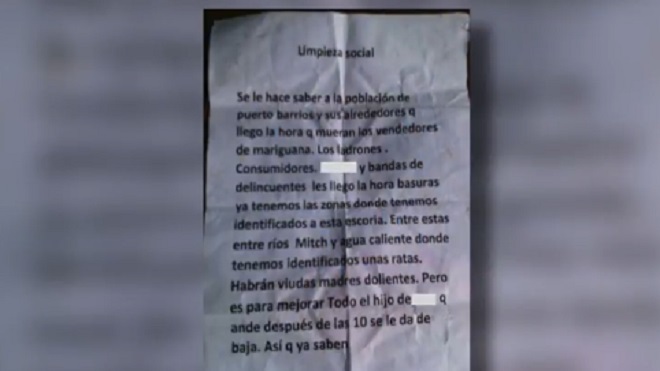 Umpieza social
Se le hace saber a la población de
puerto barrios y sus alrededores q
llego la hora q mueran los vendedores
de mariguana. Los ladrones .
Consumidores. y bandas de
delincuentes les llego la hora basuras
ya tenemos las zonas donde tenemos
identificados a esta escoria. Entre estas
entre ríos Mitch y agua caliente donde
tenemos identificados unas ratas.
Habrán viudas madres dolientes. Pero
es para mejorar Todo el hijo de q
ande después de las 10 se le da de
baja. Así q ya saben